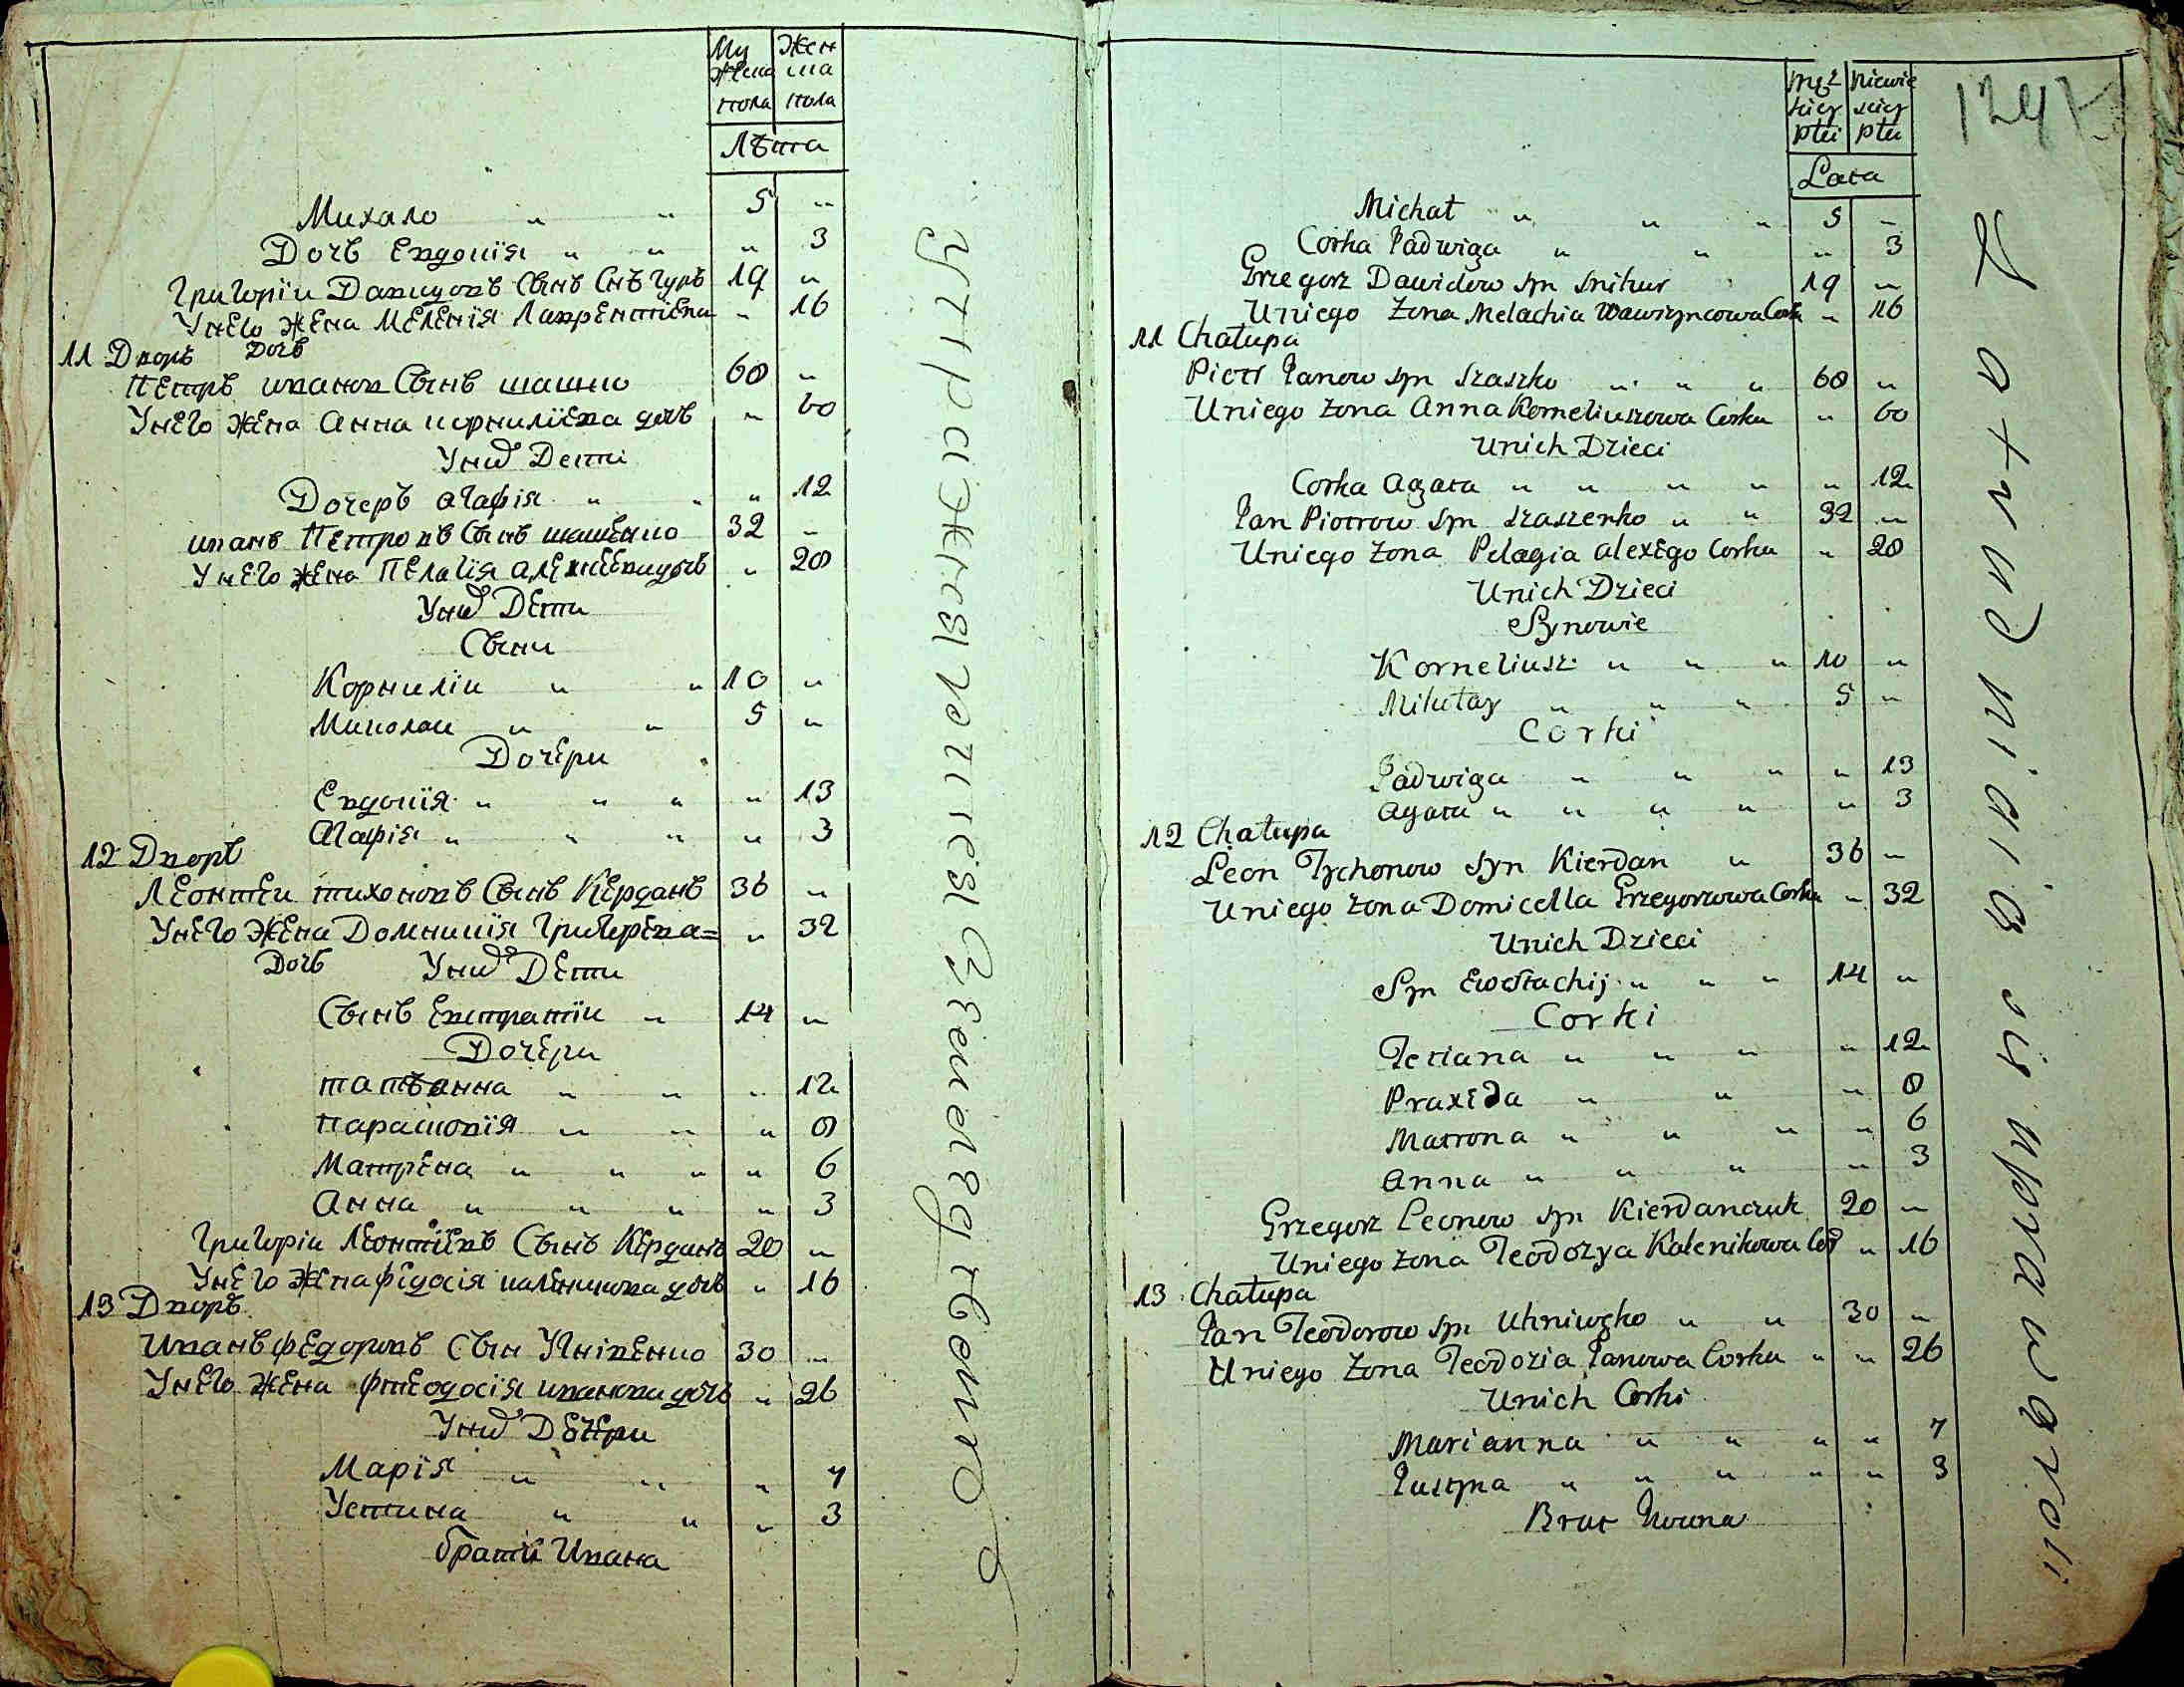 Му Жен
жена ша
пола пола
Лѣта
Михало " " 5 "
Дочь Евдокія " " " 3
Григорїи Давидовъ Сынъ Снѣгуръ 19 "
Унего Жена Меленія Лаврентіева " 16
11 Дворъ Дочь
Петръ иванов Сынъ шашко 60 "
Унего Жена Анна корниліева дочь " 60
Униѡ Дети
Дочеръ агафія " " " 12
иванъ Петровъ Сынъ шашенко 32 "
Унего жена Пелагія алексеева дочь " 28
Униѡ Дети
Сыни
Корнилїи " " 10 "
Миколаи " " 5 "
Дочери
Евдокїя " " " " 13
Агафія " " " " 3
12 Дворъ
Леонтеи тихоновъ Сынъ Керданъ 36 "
Унего Жена Домникїя Григорева= " 32
Дочь Униѡ Дети
Сынъ Евстратїи " 14 "
Дочери
татѣанна " " " 12
парасковїя " " " 8
Матрена " " " " 6
Анна " " " " 3
Григорїи Леонтїевъ Сынъ Керданъ 20 "
Унего Жена федосія каленикова дочь " 16
13 Дворъ
Иванъ федоровъ Сын Угнївенко 30 "
Унего Жена фтеодосія иванова дочь " 26
Униѡ Дочери
Марїя " " " 7
Устина " " " 3
братъ Ивана
męż niewie
kiey sciey
płci płci
Lata
Michał " " " 5 "
Corka Jadwiga " " " 3
Grzegorz Dawidow syn Snihur 19 "
Uniego Żona Melachia Wawrzyncowa Corka " 16
11 Chałupa
Piotr Janow syn Szaszko " " " 60 "
Uniego żona Anna Korneliuszowa Corka " 60
Unich Dzieci
Corka Agata " " " " " 12
Jan Piotrow Syn Szaszenko " " 32 "
Uniego żona Pelagia Alexego Corka " 28
Unich Dzieci
Synowie
Korneliusz " " " 10 "
Mikołay " " " 5 "
Corki
Jadwiga " " " " 13
Agata " " " " " 3
12 Chałupa
Leon Tychonow Syn Kierdan " 36 "
Uniego żona Domicella Grzegorzowa Corka " 32
Unich Dzieci
Syn Ewstachij " " " 14 "
Corki
Tetiana " " " " 12
Praxeda " " " 8
Matrona " " " " 6
Anna " " " " 3
Grzegorz Leonow syn Kierdanczuk 20 "
Uniego żona Teodozya Kalenikowa Cor " 16
13 Chałupa
Jan Teodorow syn Uhniwęko " " 30 "
Uniego żona Teodozia Janowa Corka " " 26
Unich Corki
Marianna " " " " 7
Justyna " " " " " 3
Brat Iwana